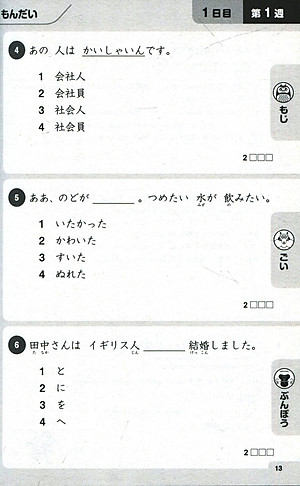 もんだい
1日目
第1週
4 あの 人は かいしゃいんです。
1 会社人
2 会社員
3 社会人
4 社会員
もじ
2□□□
5 ああ、のどが＿＿＿＿。つめたい 水が 飲みたい。
みず の
1 いたかった
2 かわいた
3 すいた
4 ぬれた
ごい
2□□□
6 田中さんは イギリス人＿＿＿＿結婚しました。
た なか じん けっ こん
1 と
2 に
3 を
4 へ
ぶんぽう
2□□□
13